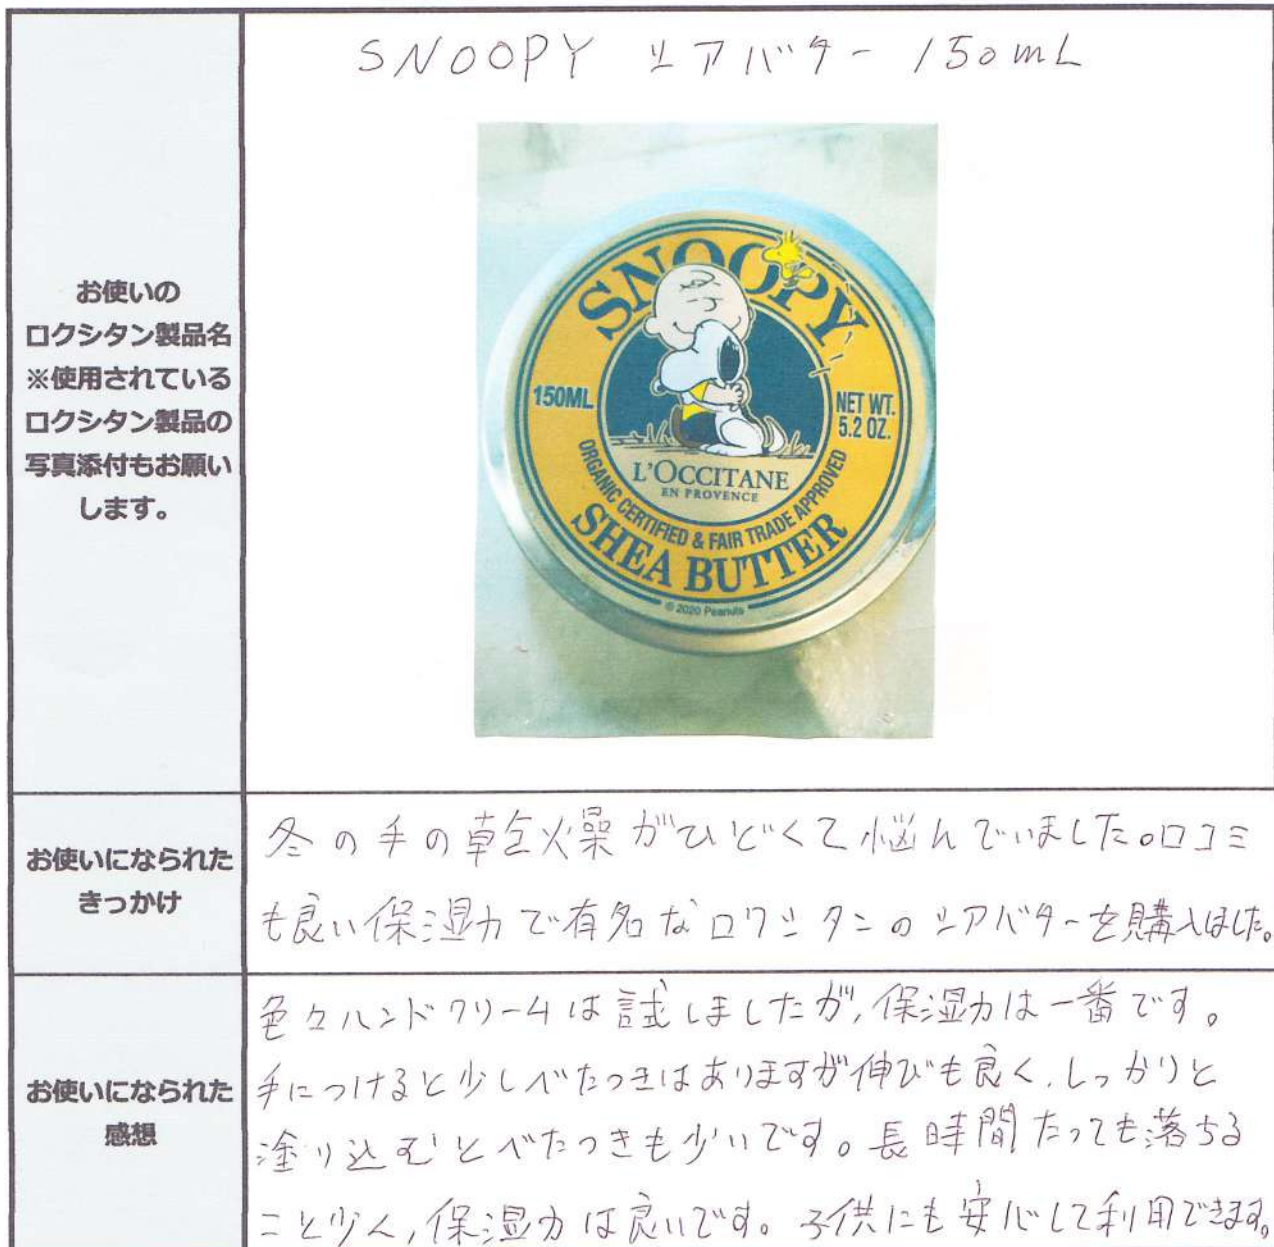 SNOOPY シアバター 150mL
お使いの
ロクシタン製品名
※使用されている
ロクシタン製品の
写真添付もお願い
します。
SNOOPY
150ML
NET WT.
5.2 OZ.
L'OCCITANE
EN PROVENCE
ORGANIC CERTIFIED & FAIR TRADE APPROVED
SHEA BUTTER
© 2020 Peanuts
お使いになられた
きっかけ
冬の手の乾燥がひどくて悩んでいました。口コミ
も良い保湿力で有名なロクシタンのシアバターを購入しました。
お使いになられた
感想
色々ハンドクリームは試しましたが、保湿力は一番です。
手につけると少しべたつきはありますが伸びも良く、しっかりと
塗り込むとべたつきも少いです。長時間たっても落ちる
こと少く、保湿力は良いです。子供にも安心して利用できます。